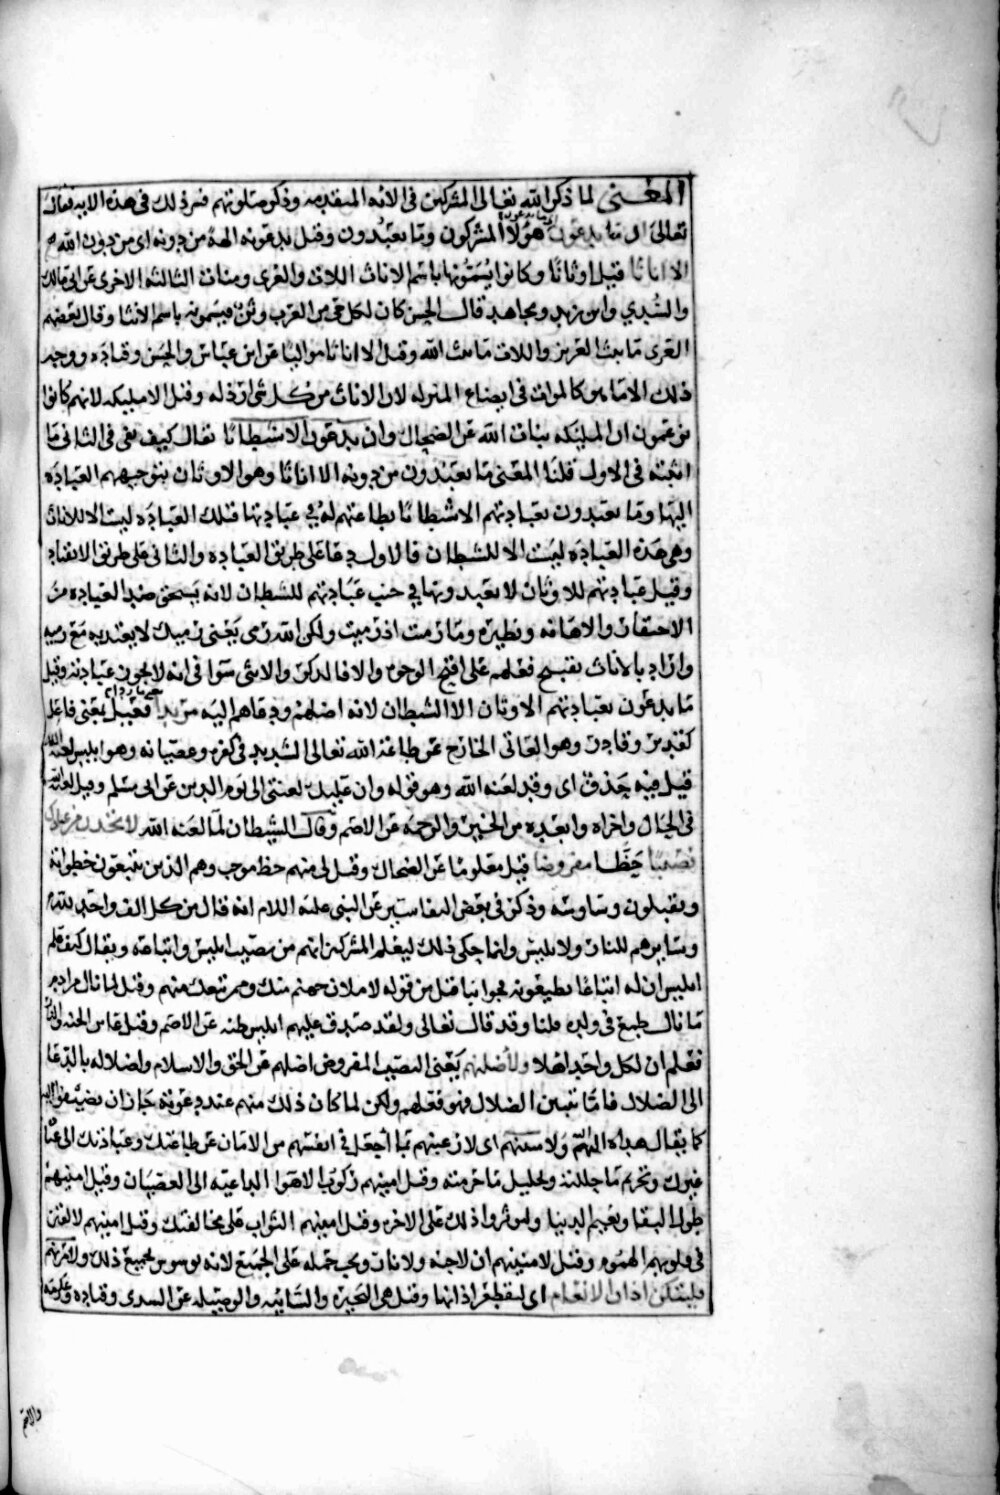 المعنى لما ذكر الله تعالى المشركين في الآية المتقدمة وذكر ضلالتهم فسر ذلك في هذه الاية فقال
تعالى ان يدعون هؤلا المشركون وما يعبدون وقيل يدعونه الهة من دونه اى من دون الله
الا اناثا قيل اوثانا وكانوا يسمونها باسم الاناث اللات والعزى ومنات الثالثة الاخرى عن ابى مالك
والسدي وابن زيد ومجاهد قال الحسن كان لكل حى من العرب وثن فيسمونه باسم الانثا وقال بعضهم
العزى تانيث العزيز واللات تانيث الله وقيل الا اناثا مواتا عن ابن عباس والحسن وقتاده ووجه
ذلك الاناث كالموات في اتضاع المنزله لان الاناث من كل شى ارذله وقيل الا مليكه لانهم كانوا
يزعمون ان المليكه بنات الله عن الضحاك وان يدعون الا شيطانا يقال كيف نفى في الثانى ما
اثبته في الاول قلنا المعنى ما يعبدون من دونه الا اناثا وهو الاوثان بتوجيههم العباده
اليها وما يعبدون بعبادتهم الا شيطانا بطاعتهم له في عبادتها فتلك العباده ليست الا للاناث
وهى هذه العباده ليست الا للشيطان فالاول دعا على طريق العباده والثانى على طريق الانقياد
وقيل عبادتهم للاوثان لا يعبد ونها في جنب عبادتهم للشيطان لانه يستحق ضد العباده من
الاحتقار والاهانه ونظيره وما رميت اذ رميت ولكن الله رمى يعنى رميك لا يعتد به مع رميه
واراد بالاناث تقبيح فعلهم على اقبح الوجوه والا فالذكر والانثى سوا في انه لا يجوز عبادته وقيل
ما يدعون بعبادتهم الاوثان الا الشيطان لانه اضلهم ودعاهم اليه مريدا فعيل بمعنى فاعل
كقدير وقادر وهو العاتى الخارج عن طاعة الله تعالى الشديد في كفره وعصيانه وهو ابليس لعنه الله
قيل فيه حذف اى وقد لعنه الله وهو قوله وان عليك لعنتى الى يوم الدين عن ابى مسلم وقيل لعنه الله
في الحال واخزاه وابعده من الخير والرحمه عن الاصم وقال الشيطان لما لعنه الله لاتخذن من عبادك
نصيبا حظا مفروضا قيل معلوما عن الضحاك وقيل لى منهم حظ موجب وهم الذين يتبعون خطواته
ويقبلون وساوسه وذكر في بعض التفاسير عن النبى عليه السلام انه قال من كل الف واحد لله
وسايرهم للنار ولابليس وانما حكى ذلك ليعلم المشركين انهم من نصيب ابليس واتباعه ويقال كيف علم
ابليس ان له اتباعا يطيعونه جوابنا قيل من قوله لاملان جهنم منك وممن تبعك منهم وقيل لما نال من ادم
ما نال طمع في ولده قلنا وقد قال تعالى ولقد صدق عليهم ابليس ظنه عن الاصم وقيل عاين الجنه والنار
فعلم ان لكل واحد اهلا ولأضلنهم يعنى النصيب المفروض اضلهم عن الحق والاسلام واضلاله بالدعا
الى الضلال فاما نفس الضلال فهو فعلهم ولكن لما كان ذلك منهم عند دعوته جاز ان يضيفه اليه
كما يقال هداه الله ولامنينهم اى لازعينهم بما اجعل في انفسهم من الامان عن طاعتك وعبادتك الى عبادة
غيرك وتحريم ما حللته وتحليل ما حرمته وقيل امنيهم ركوب الاهوا الداعيه الى العصيان وقيل امنيهم
طول البقا ونعيم الدنيا وليوثروا ذلك على الاخره وقيل امنيهم الثواب على مخالفتك وقيل امنيهم لالقين
في قلوبهم الهموم وقيل لامنينهم ان لا جنه ولا نار ويجب حمله على الجميع لانه يوسوس بجميع ذلك ولامرنهم
فليبتكن اذان الانعام اى ليقطعن اذانها وقيل هى البحيره والسايبه والوصيله عن السدى وقتاده وعكرمه
والاصم